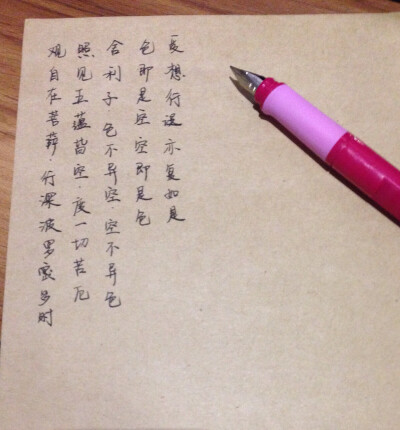 观自在菩萨·行深波罗蜜多时
照见五蕴皆空·度一切苦厄
舍利子 色不异空·空不异色
色即是空 空即是色
受想行识 亦复如是